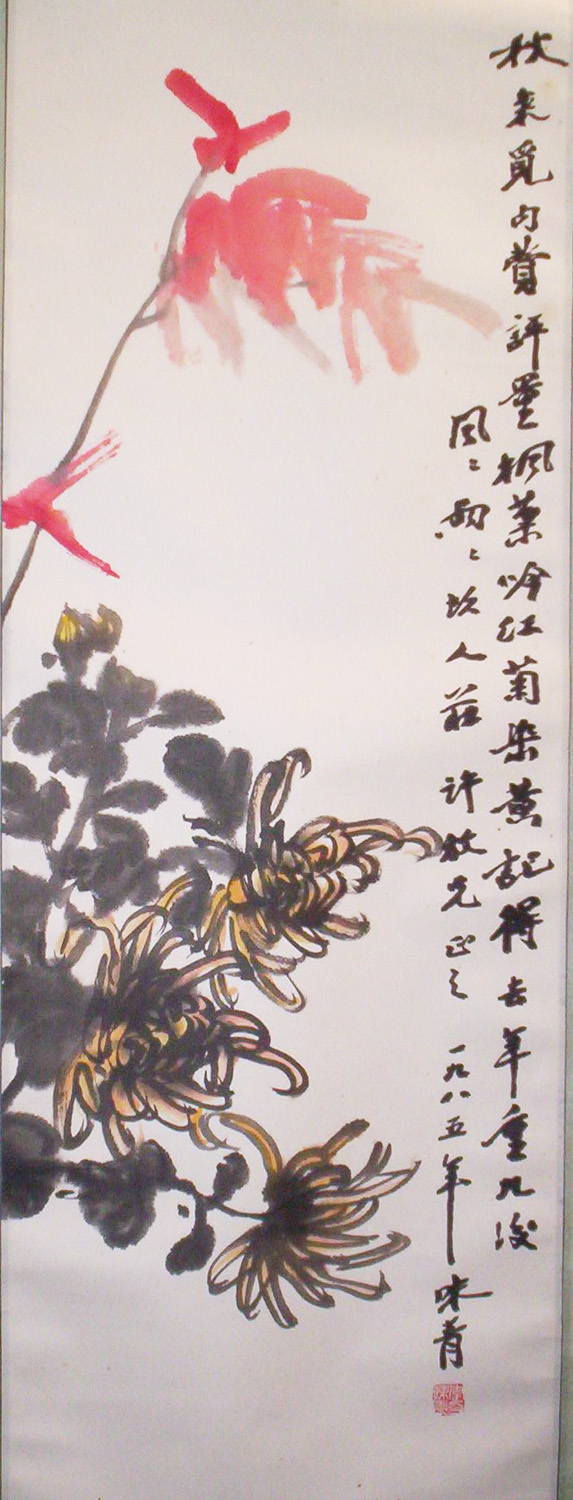 秋来覓句費評量楓葉吟红菊染黄記得去年重九後
風〻雨〻坎人莊 许放兄正之 一九八五年 味青